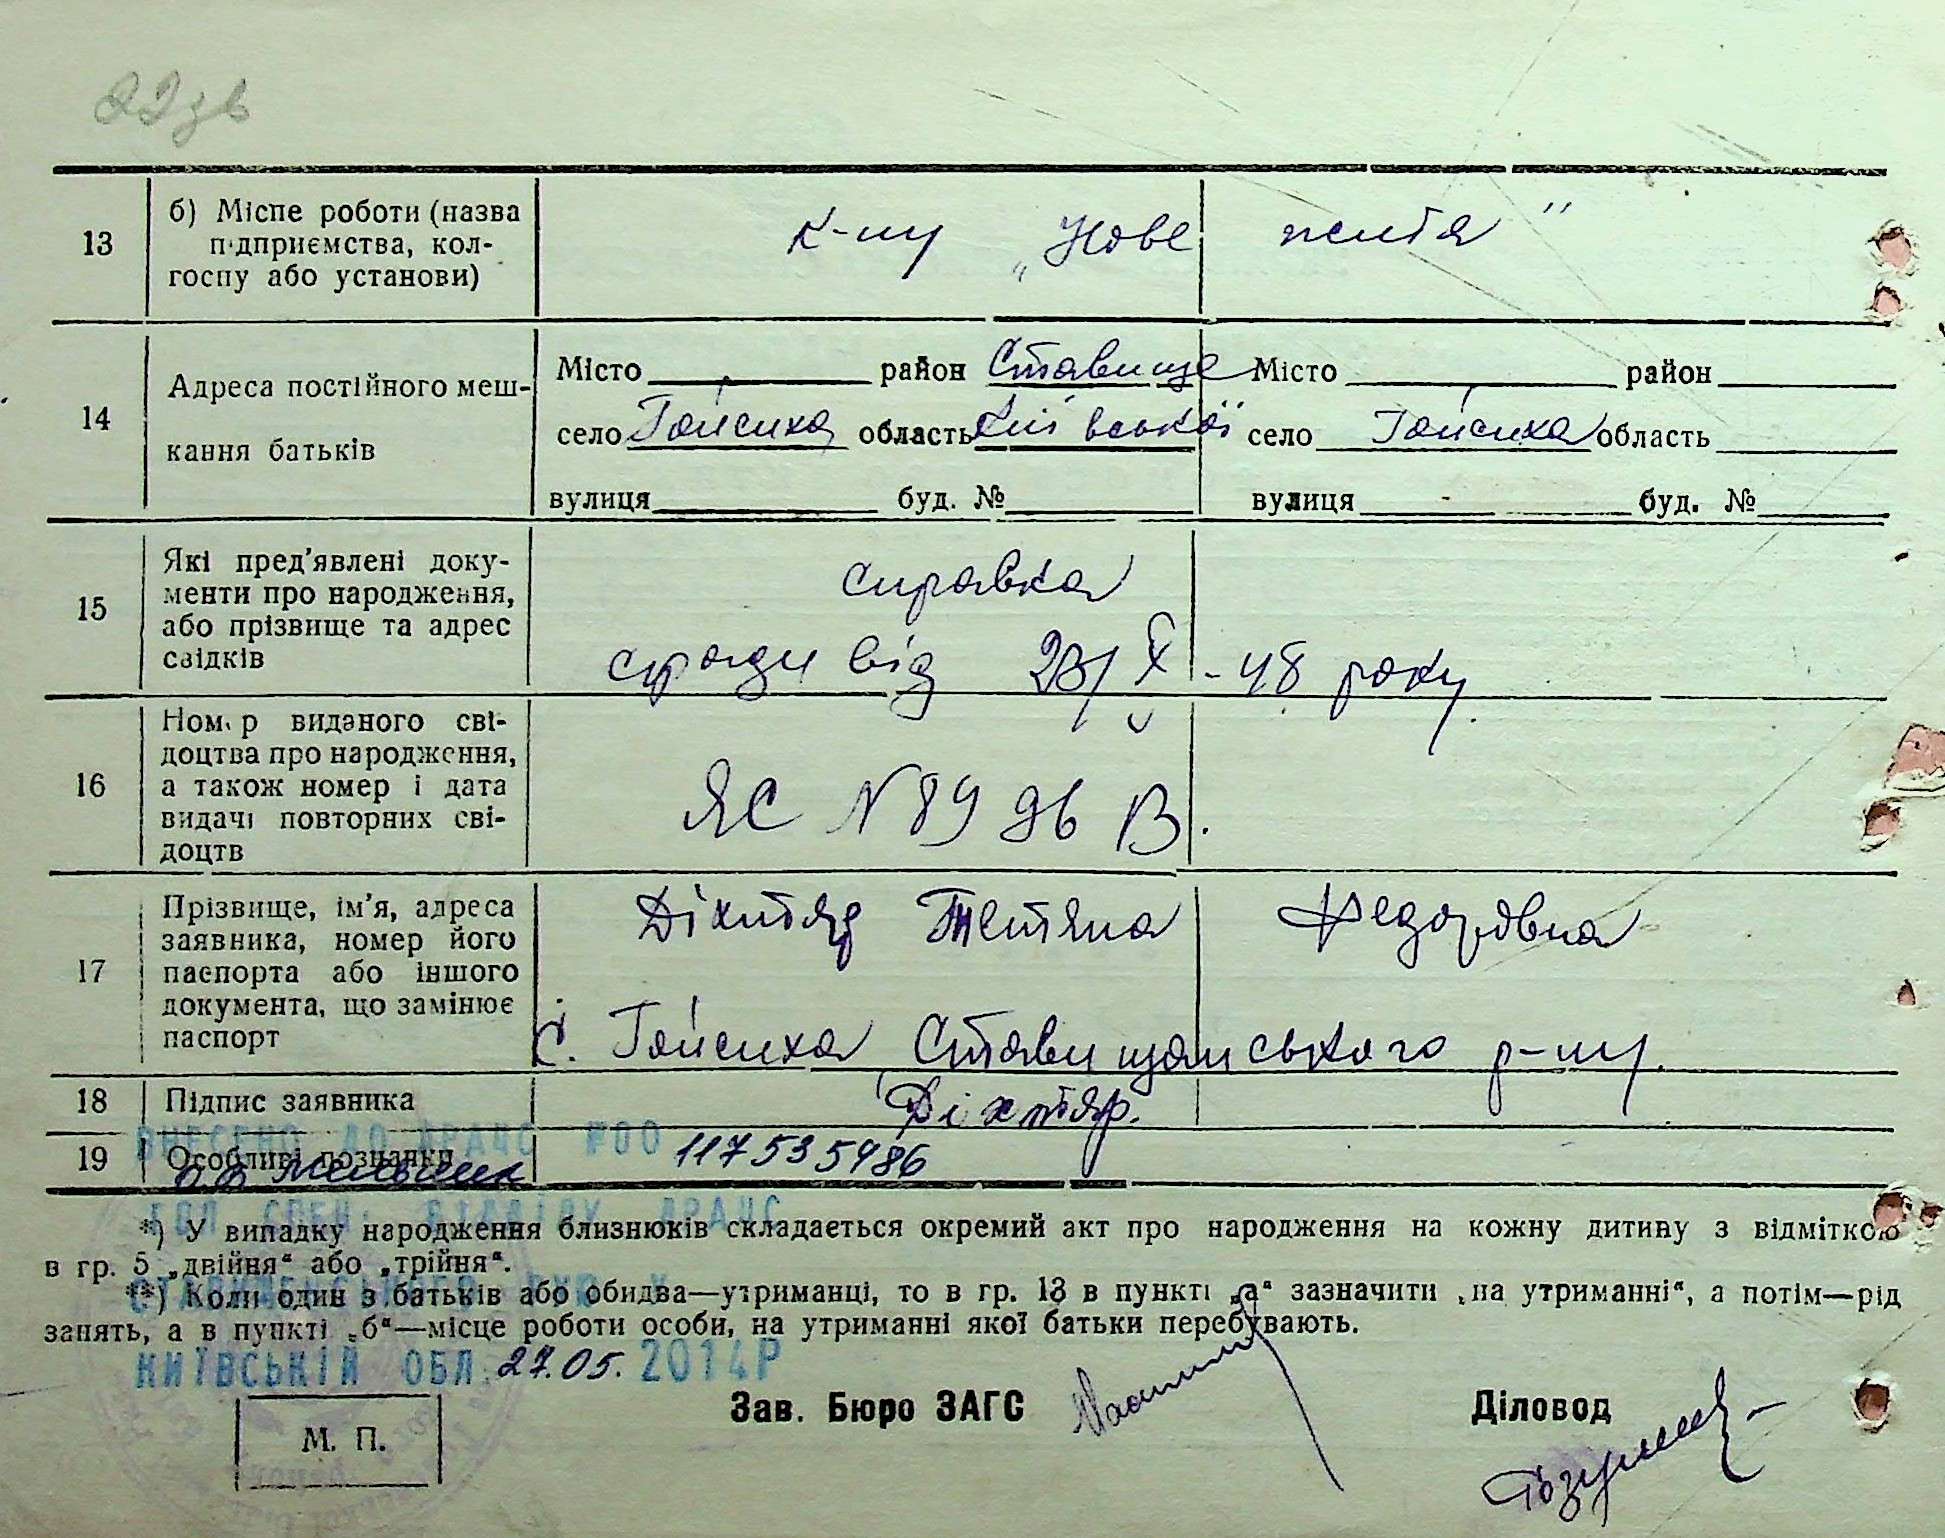 22зв
13 б) Місце роботи (назва к-пу „Нове життя"
підприємства, кол-
госпу або установи)
14 Адреса постійного меш-
кання батьків
Місто район Ставище Місто район
село Гайсиха область Київської село Гайсиха область
вулиця буд. № вулиця буд. №
15 Які пред'явлені доку-
менти про народження,
або прізвище та адрес
свідків
справка
с/ради від 23/X - 48 року
16 Номер виданого сві-
доцтва про народження,
а також номер і дата
видачі повторних сві-
доцтв
ЯС N 89 96 В.
17 Прізвище, ім'я, адреса
заявника, номер його
паспорта або іншого
документа, що замінює
паспорт
Діхтяр Тетяна Федорівна
с. Гайсиха Ставищанського р-ну.
18 Підпис заявника Діхтяр.
19 Особливі позначки 1175354986
ВНЕСЕНО ДО ДРАЦС
*) У випадку народження близнюків складається окремий акт про народження на кожну дитину з відміткою
в гр. 5 „двійня“ або „трійня“.
**) Коли один з батьків або обидва—утриманці, то в гр. 13 в пункті „а“ зазначити „на утриманні“, а потім—рід
занять, а в пункті „б“—місце роботи особи, на утриманні якої батьки перебувають.
КИЇВСЬКІЙ ОБЛ. 27.05. 2014Р
Зав. Бюро ЗАГС Діловод
М. П.